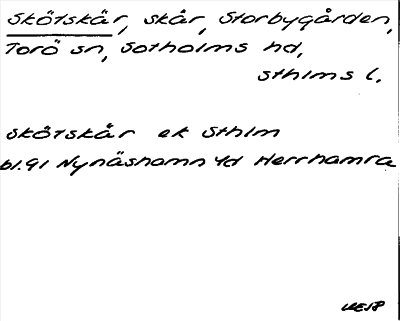 Skötskär, skär, Storbygården,
Torö sn, Sotholms hd,
Sthlms l.
Skötskär ek Sthlm
bl. 91 Nynäshamn 4d Herrhamra